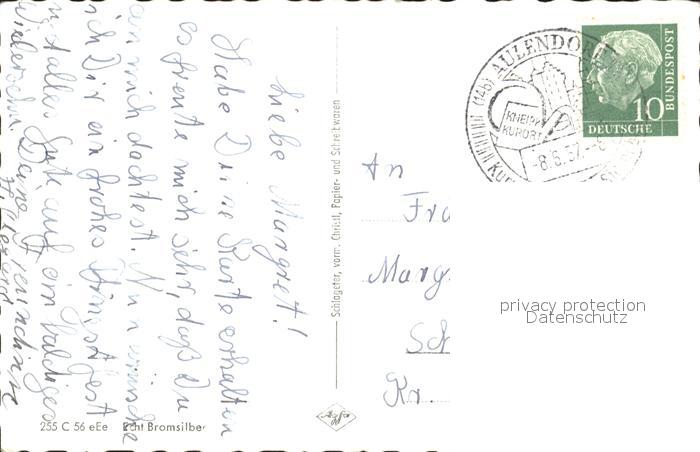 Liebe Margret!
Habe Deine Karte erhalten
es freute mich sehr, daß Du
an mich dachtest. Nun wünsche
ich Dir ein frohes Pfingstfest
u. alles Gute auf ein baldiges
Wiedersehn. Deine Freundin
255 C 56 eEe Echt Bromsilber
Schlageter, vorm. Christl, Papier- und Schreibwaren
Agfa
AULENDORF
(14b)
KNEIPP
KURORT
-8.6.57.
10
DEUTSCHE
BUNDESPOST
An
Frä
Marg
Sch
Kr.
privacy protection
Datenschutz